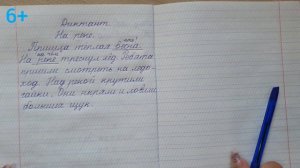 6+
Диктант.
На реке.
Пришла тёплая весна.
На реке треснул лёд. Ребята
пришли смотреть на ледо-
ход. Над рекой кружили
чайки. Они ныряли и ловили
больших щук.